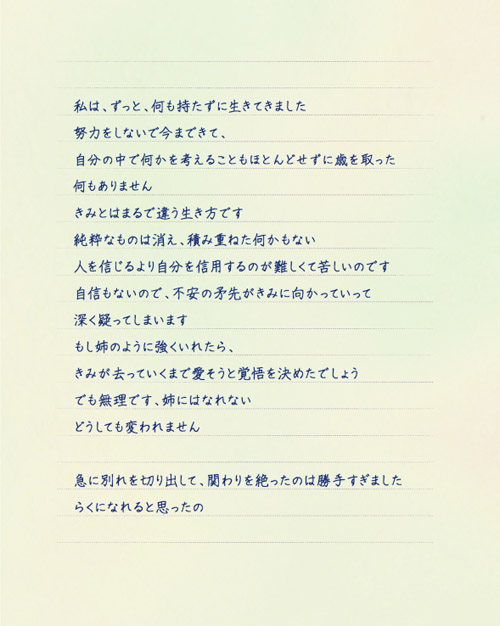 私は、ずっと、何も持たずに生きてきました
努力をしないで今まできて、
自分の中で何かを考えることもほとんどせずに歳を取った
何もありません
きみとはまるで違う生き方です
純粋なものは消え、積み重ねた何かもない
人を信じるより自分を信用するのが難しくて苦しいのです
自信もないので、不安の矛先がきみに向かっていって
深く疑ってしまいます
もし姉のように強くいれたら、
きみが去っていくまで愛そうと覚悟を決めたでしょう
でも無理です、姉にはなれない
どうしても変われません
急に別れを切り出して、関わりを絶ったのは勝手すぎました
らくになれると思ったの